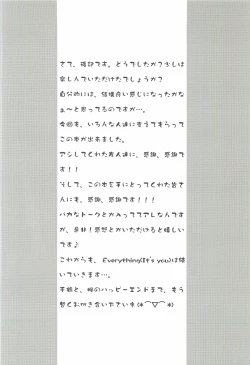 さて、後記です。どうでしたか？少しは
楽しんでいただけたでしょうか？
自分的には、結構良い感じになったかな
ぁ～と思ってるのですが…。
今回も、いろんな人達に支えてもらって
この本が出来ました。
アシしてくれた友人達に、感謝、感謝で
す！！
そして、この本を手にとってくれた皆さ
んにも、感謝、感謝です！！！
バカなトークとか入っててアレなんです
が、是非！感想とかいただけると嬉しい
です♪
これからも、Everything(It's you)は続
いていきます…。
千鶴と、柳のハッピーエンドまで、もう
暫くお付き合い下さいネ(*⌒▽⌒*)